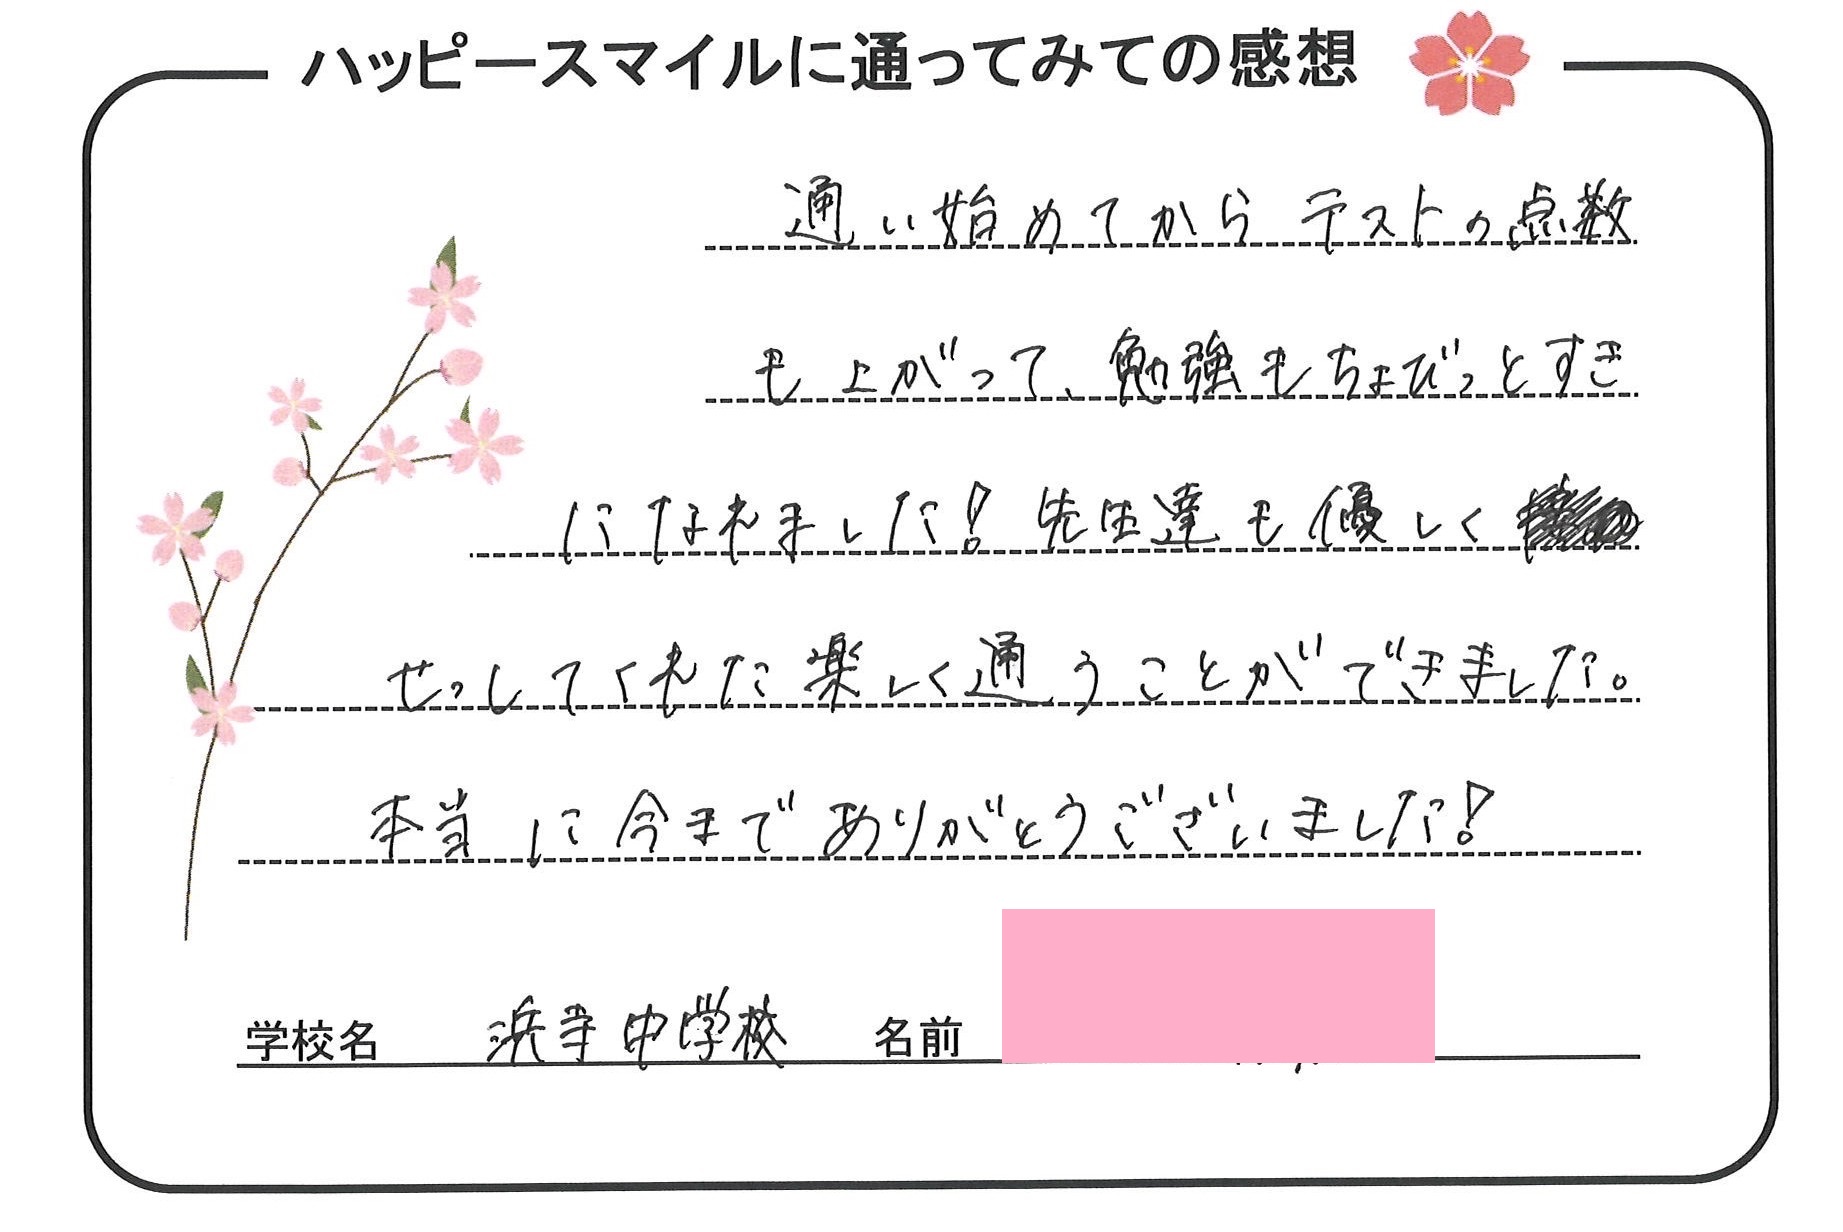 ハッピースマイルに通ってみての感想
通い始めてから テストの点数
も上がって、勉強もちょびっとすき
になれました! 先生達も優しく
せっしてくれた楽しく通うことができました。
本当に今までありがとうございました!
学校名 浜寺中学校 名前